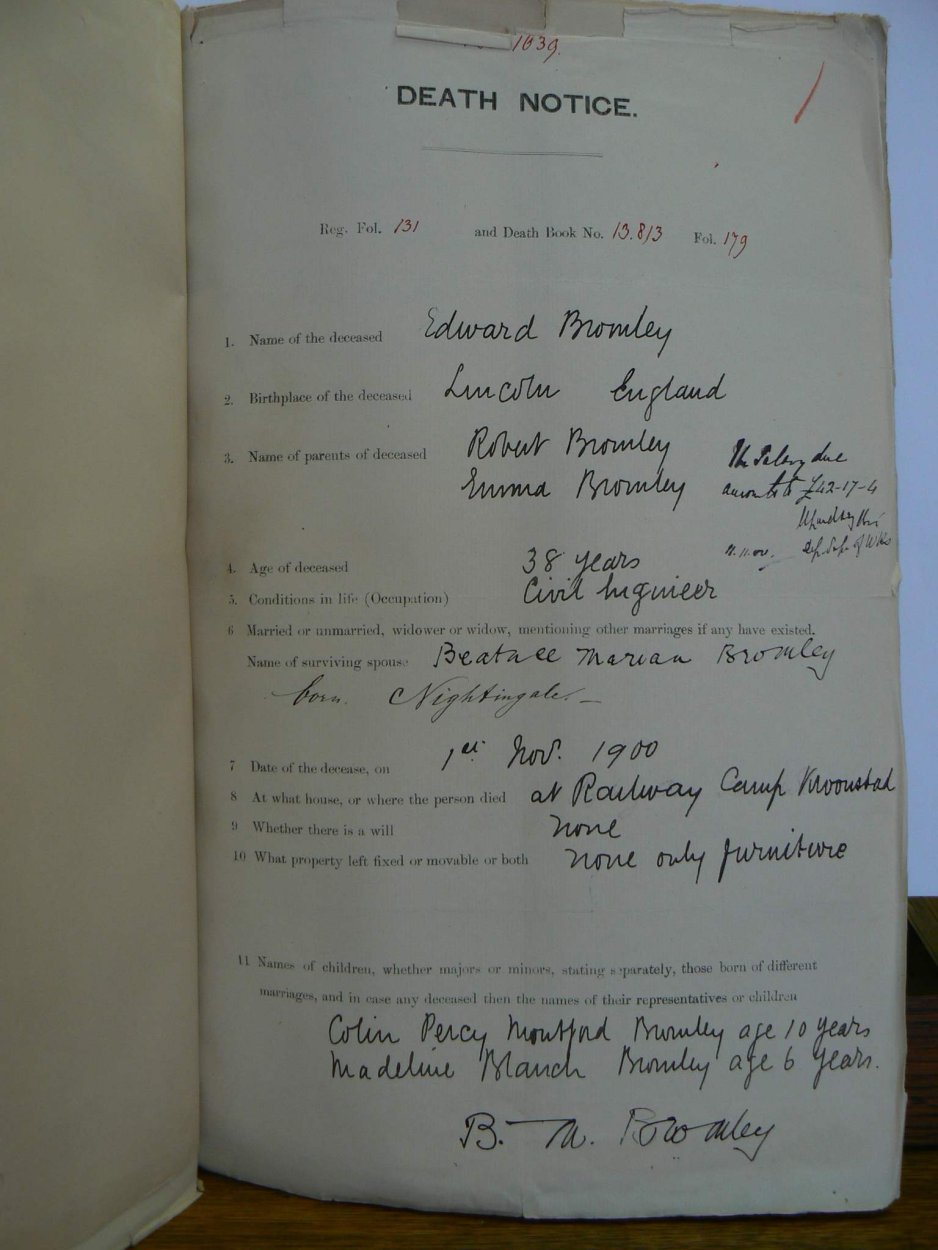 1639.
DEATH NOTICE.
Reg. Fol. 131 and Death Book No. 13.813 Fol. 179
1. Name of the deceased Edward Bromley
2. Birthplace of the deceased Lincoln England
3. Name of parents of deceased Robert Bromley
Emma Bromley
The Salary due
amounts to £42-17-4
11.11.00.
4. Age of deceased 38 years
5. Conditions in life (Occupation) Civil Engineer
6 Married or unmarried, widower or widow, mentioning other marriages if any have existed.
Name of surviving spouse Beatrice Marian Bromley
born. Nightingale. —
7 Date of the decease, on 1st Nov. 1900
8 At what house, or where the person died at Railway Camp Kroonstad
9 Whether there is a will none
10 What property left fixed or movable or both none only furniture
11 Names of children, whether majors or minors, stating separately, those born of different
marriages, and in case any deceased then the names of their representatives or children
Colin Percy Montford Bromley age 10 years
Madeline Blanch Bromley age 6 years.
B. M. Bromley